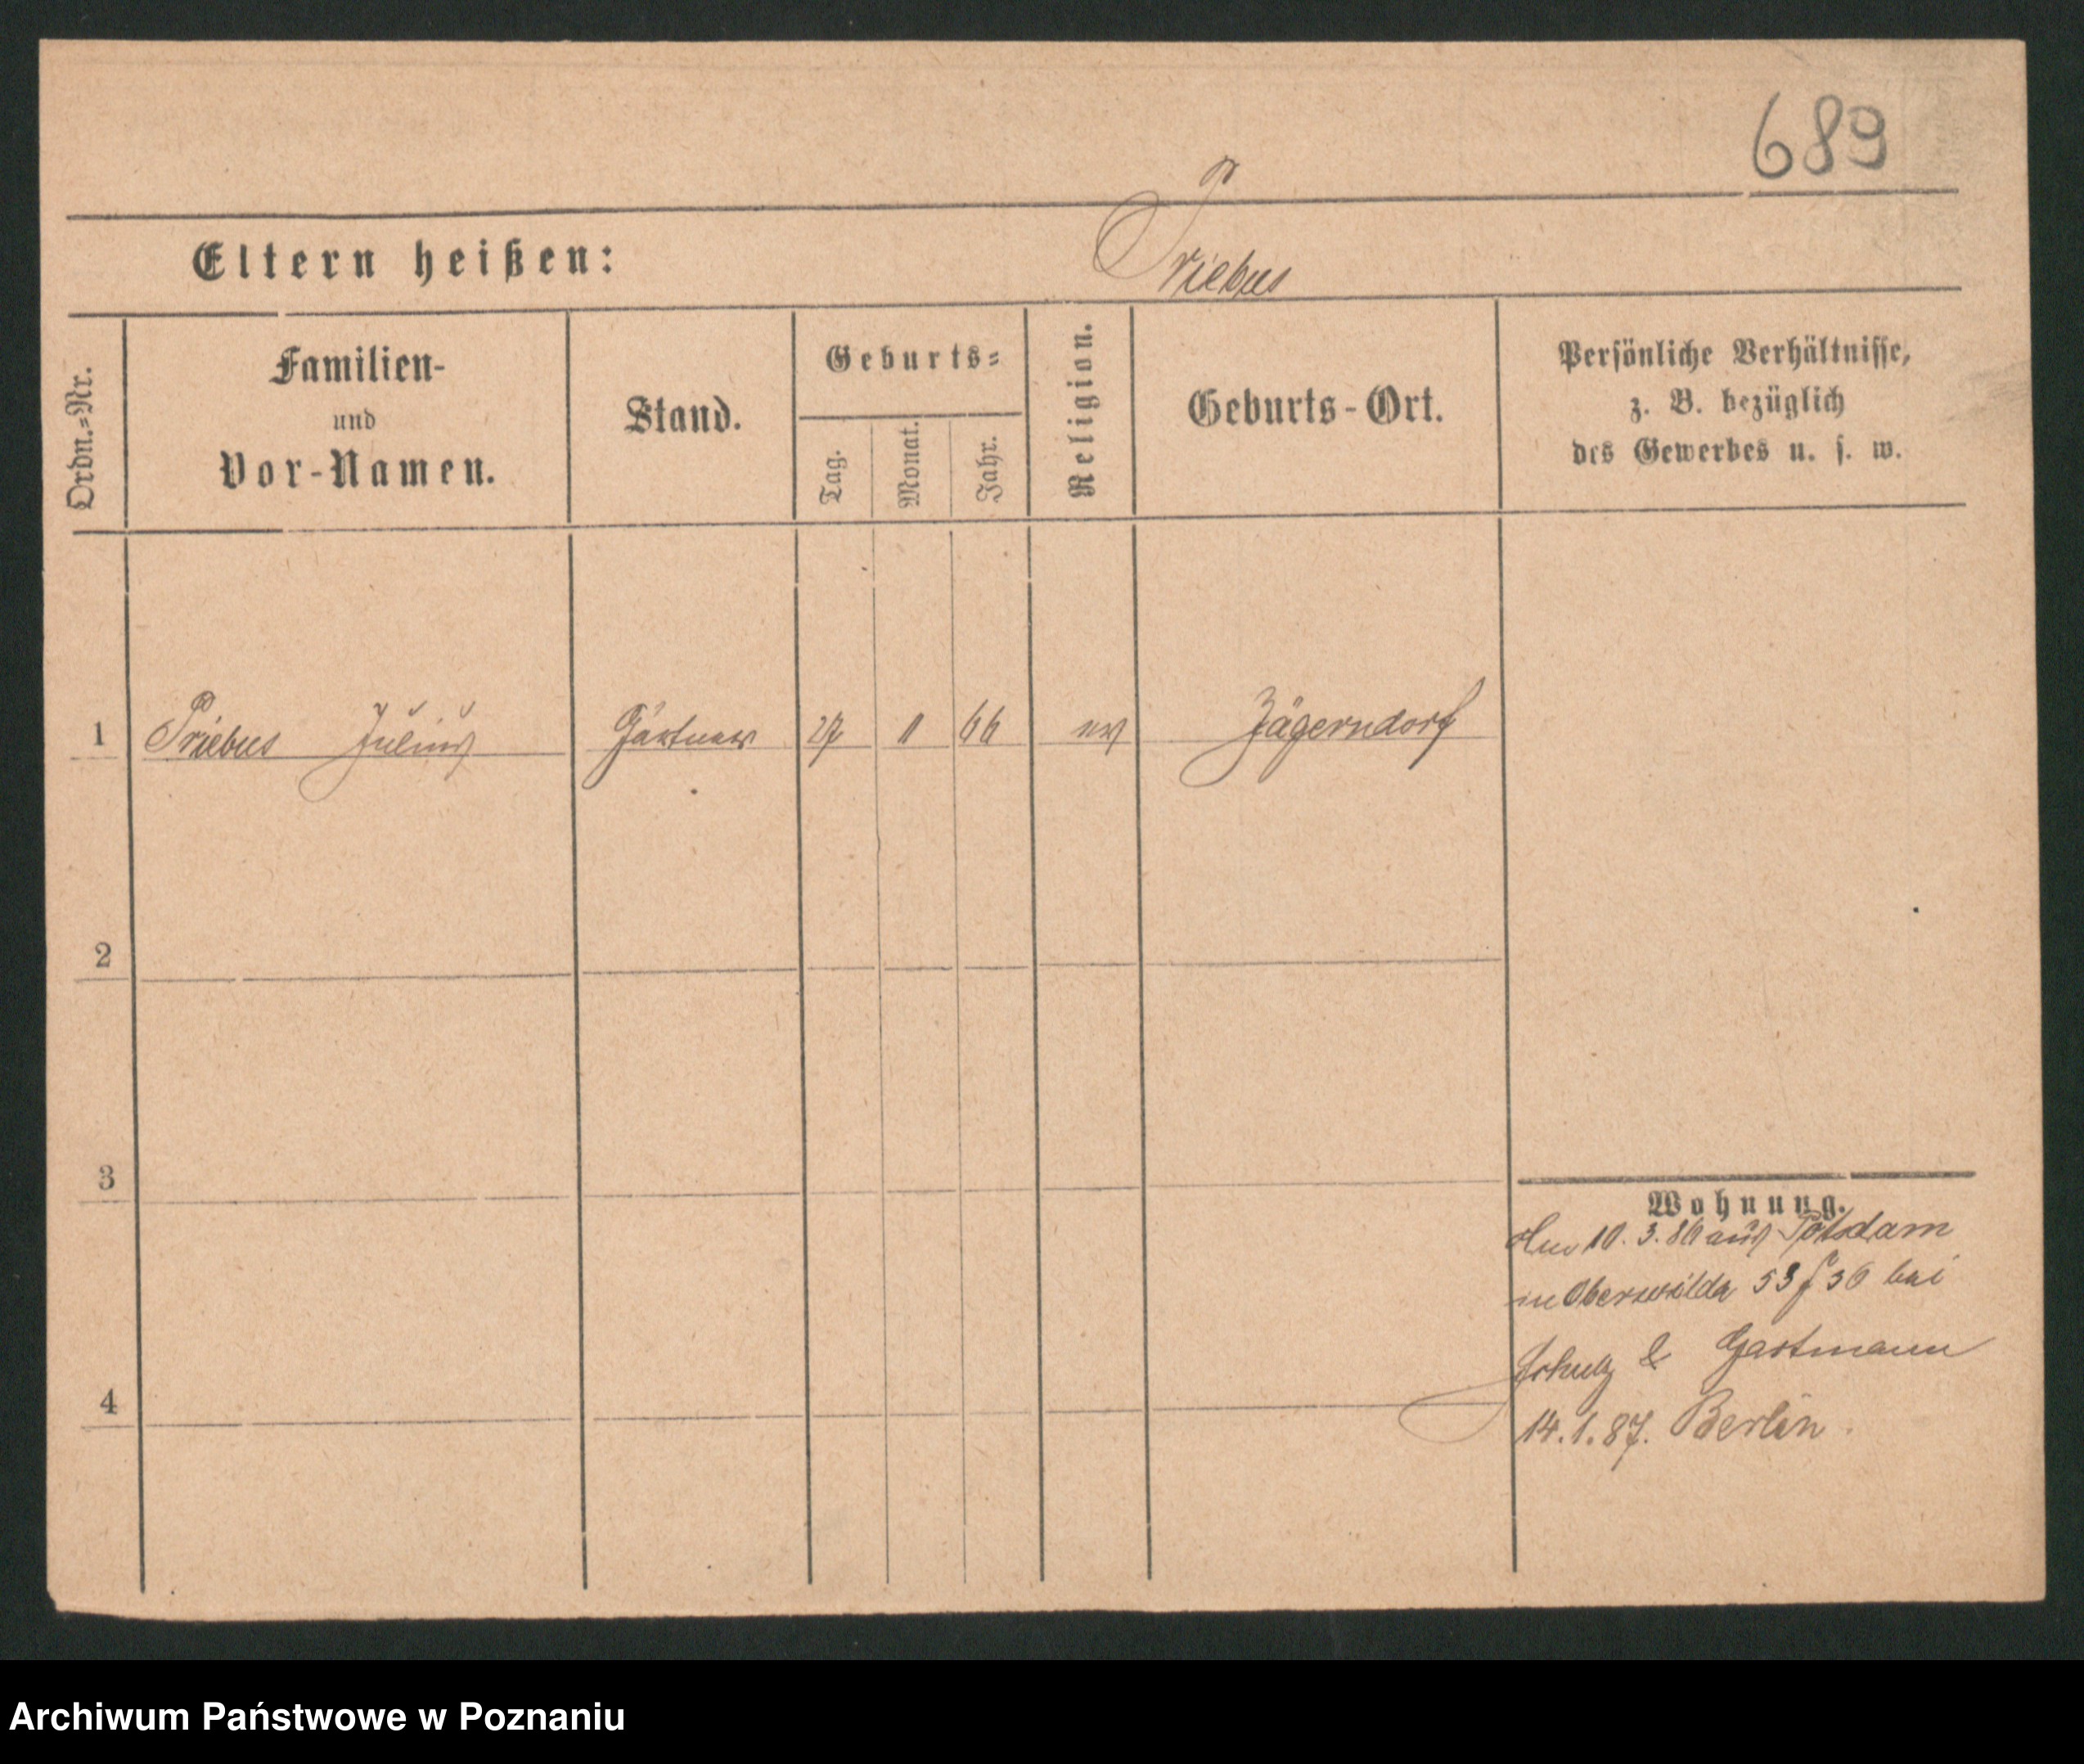 689
Eltern heißen: Priebus
Ordn.=Nr.
Familien-
und
Vor-Namen.
Stand.
Geburts=
Tag.
Monat.
Jahr.
Religion.
Geburts-Ort.
Persönliche Verhältnisse,
z. B. bezüglich
des Gewerbes u. s. w.
1 Priebus Julius Gärtner 27 11 66 ev Jägerndorf
2
3
4
Wohnung.
10. 3. 86 aus Potsdam
in Oberwilda 53 36 bei
Schulz & Gastmann
14. 1. 87. Berlin.
Archiwum Państwowe w Poznaniu